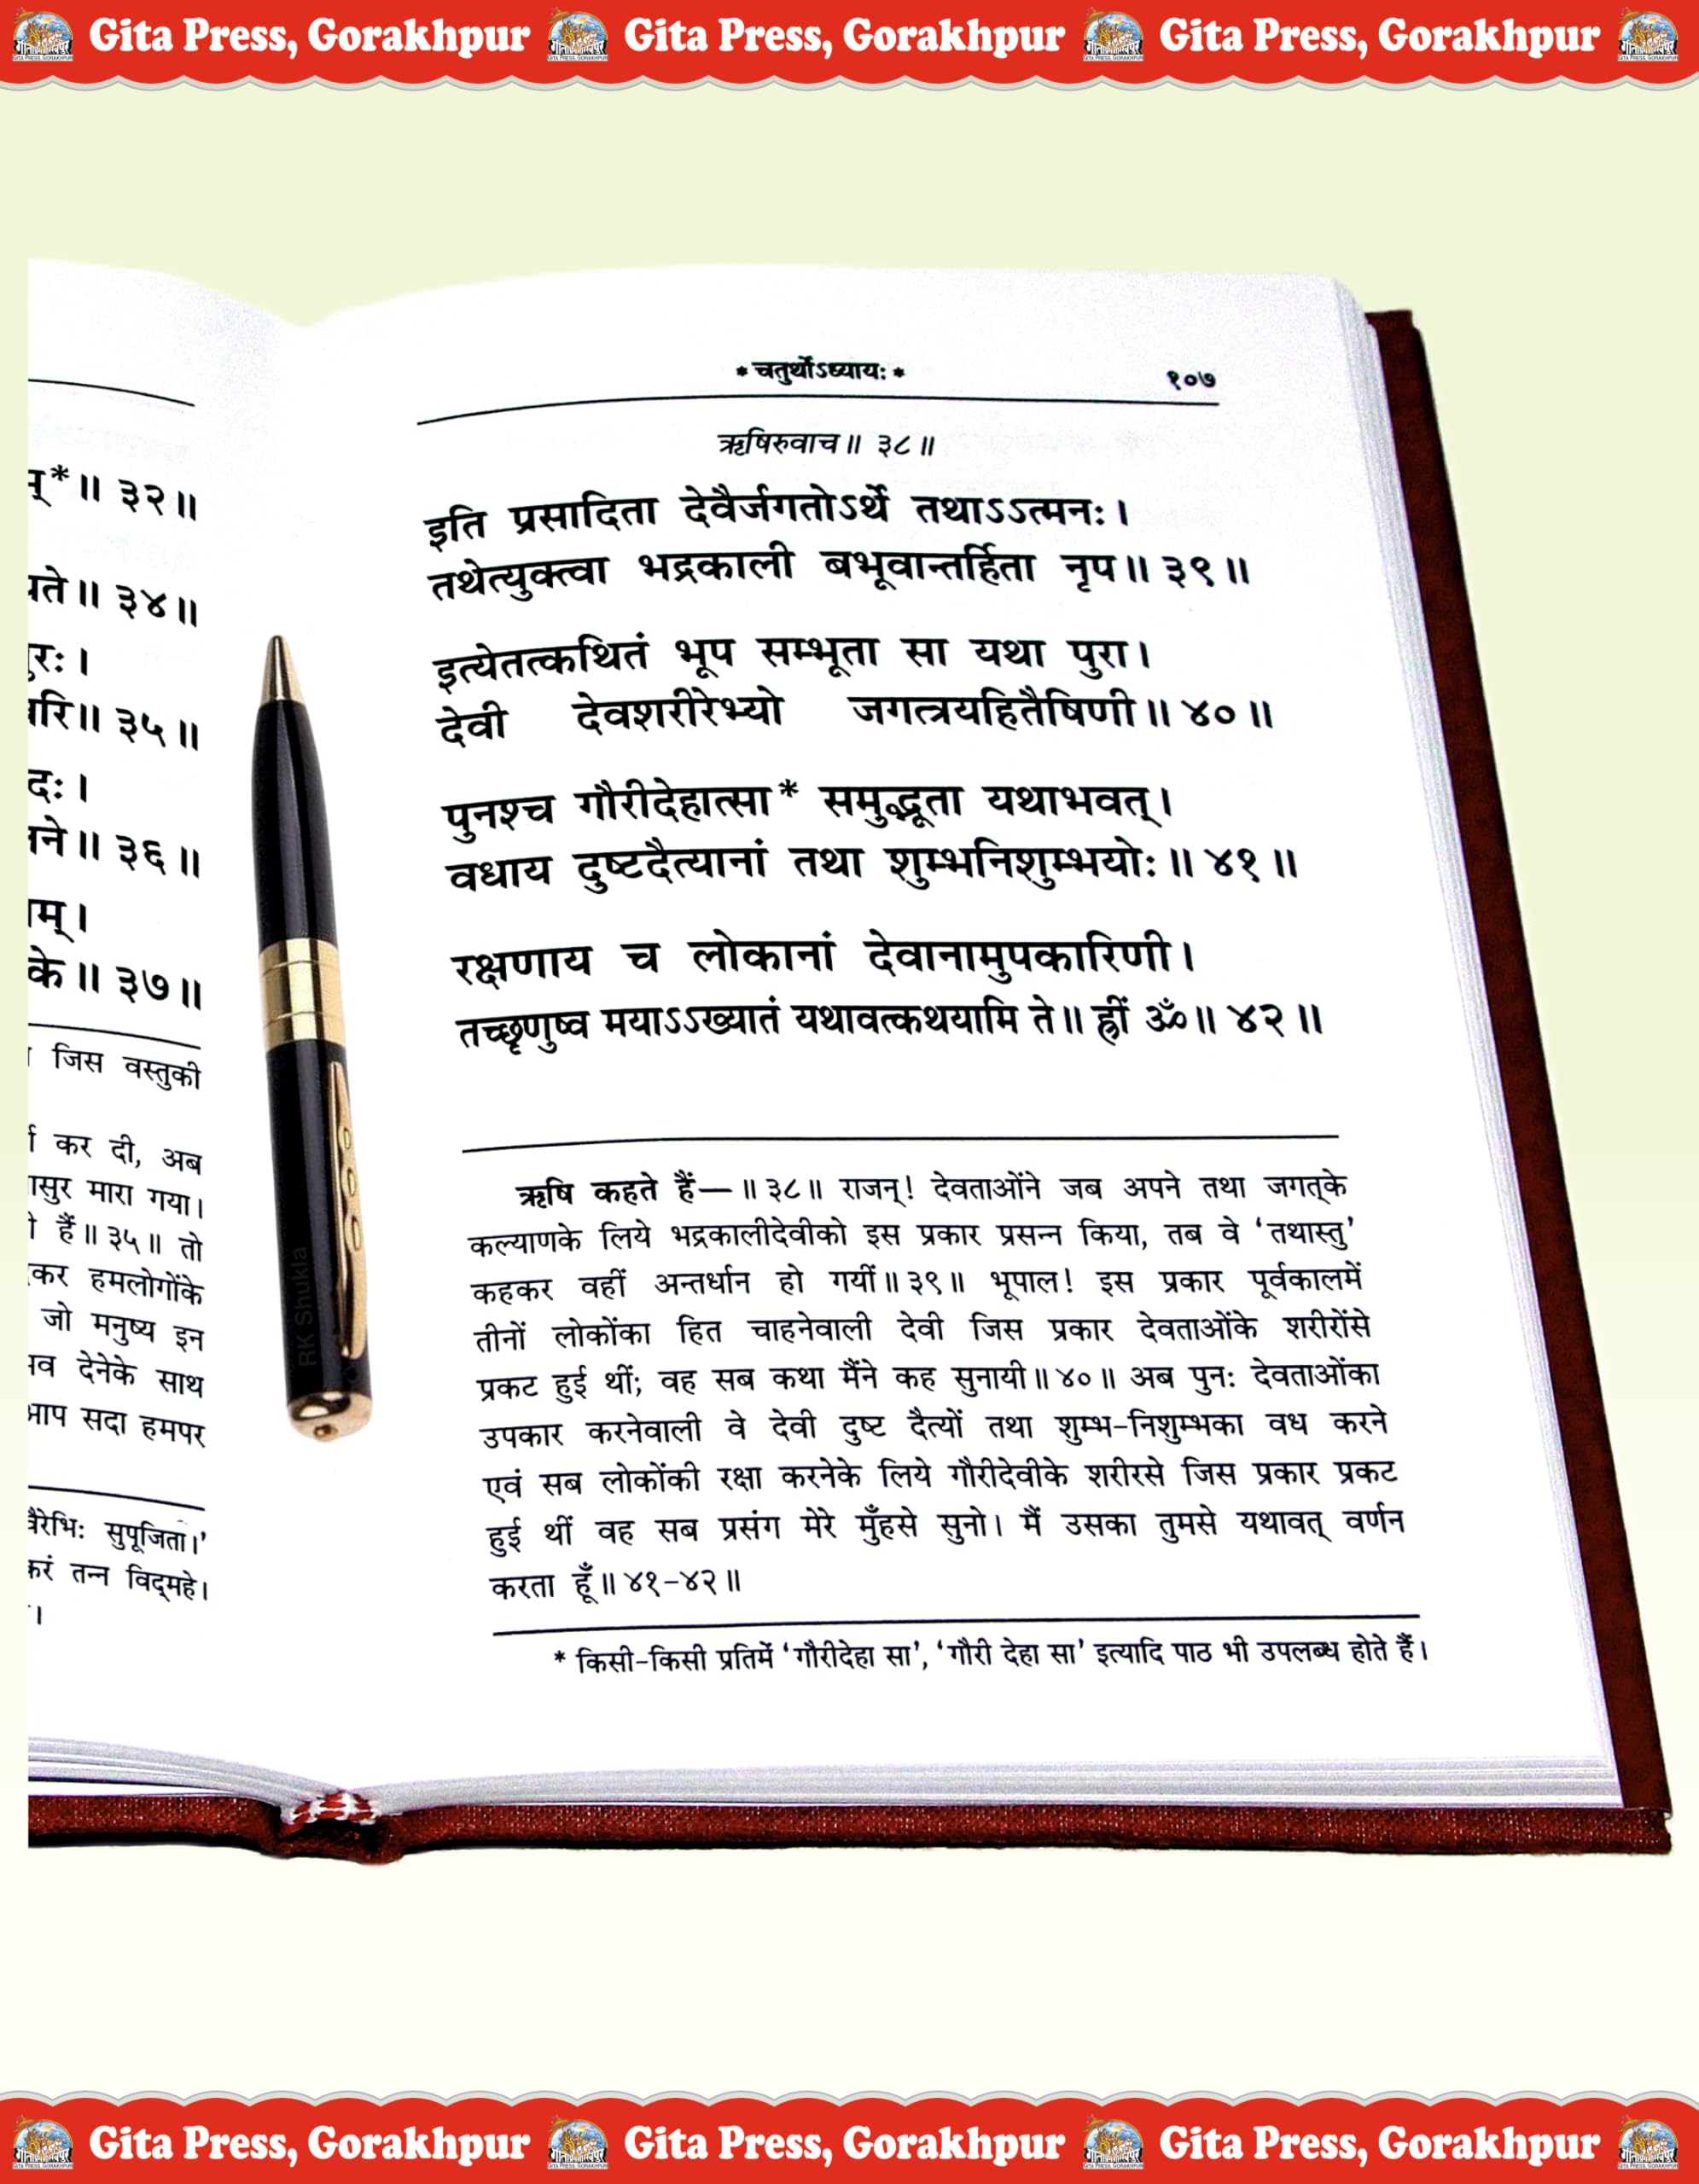 Gita Press, Gorakhpur Gita Press, Gorakhpur Gita Press, Gorakhpur
॥ ३२॥
॥ ३४॥
॥ ३५॥
॥ ३६॥
॥ ३७॥
जिस वस्तुकी
कर दी, अब
मारा गया।
हैं॥ ३५॥ तो
हमलोगोंके
जो मनुष्य इन
देनेके साथ
सदा हमपर
सुपूजिता।’
तन्न विद्महे।
* चतुर्थोऽध्यायः * १०७
ऋषिरुवाच॥ ३८॥
इति प्रसादिता देवैर्जगतोऽर्थे तथाऽऽत्मनः।
तथेत्युक्त्वा भद्रकाली बभूवान्तर्हिता नृप॥ ३९॥
इत्येतत्कथितं भूप सम्भूता सा यथा पुरा।
देवी देवशरीरेभ्यो जगत्त्रयहितैषिणी॥ ४०॥
पुनश्च गौरीदेहात्सा* समुद्भूता यथाभवत्।
वधाय दुष्टदैत्यानां तथा शुम्भनिशुम्भयोः॥ ४१॥
रक्षणाय च लोकानां देवानामुपकारिणी।
तच्छृणुष्व मयाऽऽख्यातं यथावत्कथयामि ते॥ ह्रीं ॐ॥ ४२॥
ऋषि कहते हैं—॥ ३८॥ राजन्! देवताओंने जब अपने तथा जगत्‌के
कल्याणके लिये भद्रकालीदेवीको इस प्रकार प्रसन्न किया, तब वे ‘तथास्तु’
कहकर वहीं अन्तर्धान हो गयीं॥ ३९॥ भूपाल! इस प्रकार पूर्वकालमें
तीनों लोकोंका हित चाहनेवाली देवी जिस प्रकार देवताओंके शरीरोंसे
प्रकट हुई थीं; वह सब कथा मैंने कह सुनायी॥ ४०॥ अब पुनः देवताओंका
उपकार करनेवाली वे देवी दुष्ट दैत्यों तथा शुम्भ-निशुम्भका वध करने
एवं सब लोकोंकी रक्षा करनेके लिये गौरीदेवीके शरीरसे जिस प्रकार प्रकट
हुई थीं वह सब प्रसंग मेरे मुँहसे सुनो। मैं उसका तुमसे यथावत् वर्णन
करता हूँ॥ ४१-४२॥
* किसी-किसी प्रतिमें ‘गौरीदेहा सा’, ‘गौरी देहा सा’ इत्यादि पाठ भी उपलब्ध होते हैं।
RK Shukla
Gita Press, Gorakhpur Gita Press, Gorakhpur Gita Press, Gorakhpur